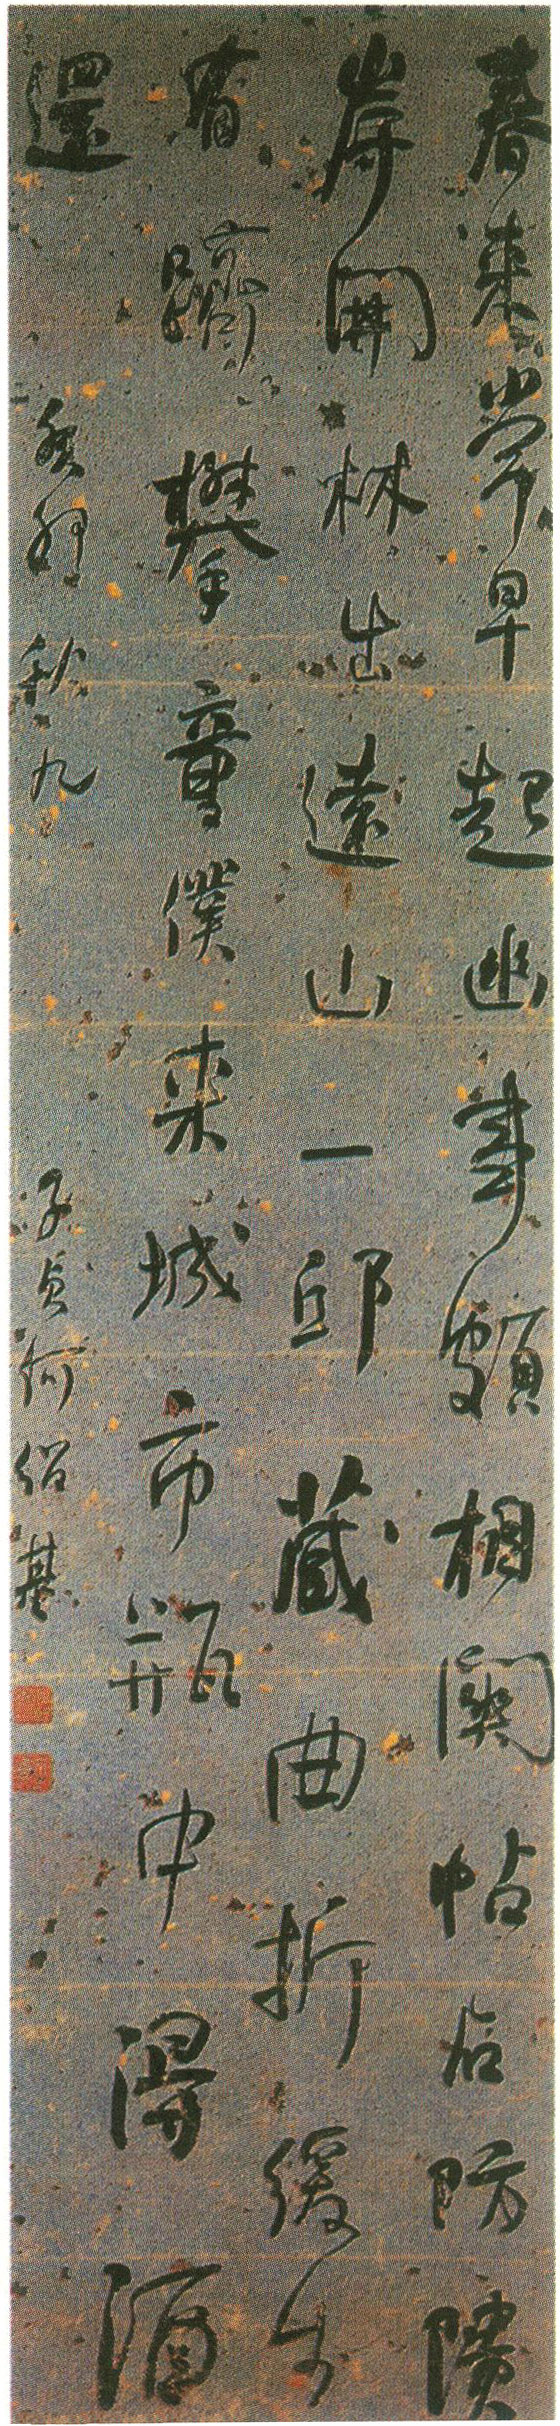 春来常早起幽事頗相関帖石防隤
岸開林出遠山一邱藏曲折緩步
有躋攀童僕来城市瓶中得酒
還 癸卯秋九 子貞何紹基